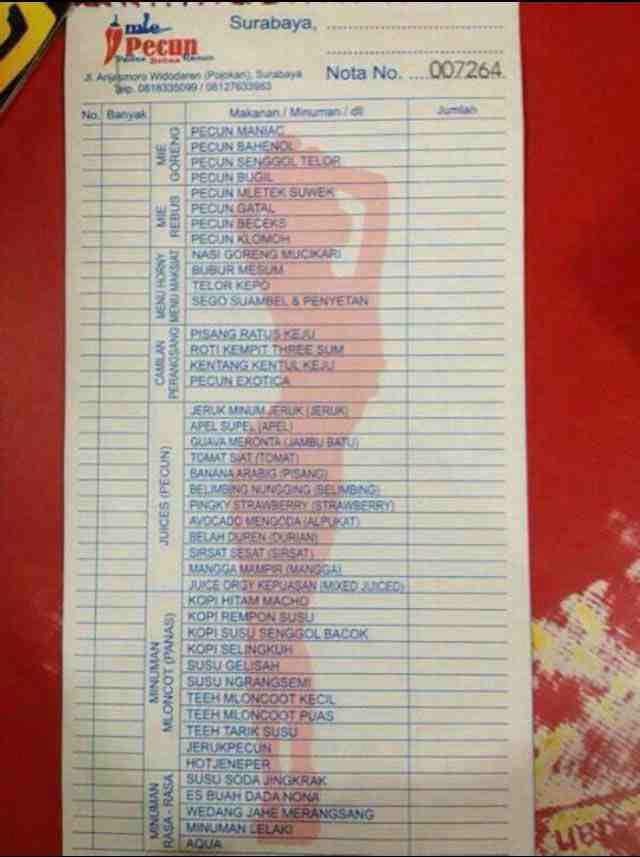 mie
Pecun
Surabaya,
Jl. Anjasmoro Widodaren (Pojokan), Surabaya
Telp. 0818335099 / 08127633983
Nota No. ....007264
No. Banyak Makanan / Minuman / dll Jumlah
MIE GORENG
PECUN MANIAC
PECUN BAHENOL
PECUN SENGGOL TELOR
PECUN BUGIL
MIE REBUS
PECUN MLETEK SUWEK
PECUN GATAL
PECUN BECEKS
PECUN KLOMOH
MENU HORNY
MENU MAKSIAT
NASI GORENG MUCIKARI
BUBUR MESUM
TELOR KEPO
SEGO SUAMBEL & PENYETAN
CAMILAN PERANGSANG
PISANG RATUS KEJU
ROTI KEMPIT THREE SUM
KENTANG KENTUL KEJU
PECUN EXOTICA
JUICES (PECUN)
JERUK MINUM JERUK (JERUK)
APEL SUPEL (APEL)
GUAVA MERONTA (JAMBU BATU)
TOMAT SIAT (TOMAT)
BANANA ARABIG (PISANG)
BELIMBING NUNGGING (BELIMBING)
PINGKY STRAWBERRY (STRAWBERRY)
AVOCADO MENGODA (ALPUKAT)
BELAH DUREN (DURIAN)
SIRSAT SESAT (SIRSAT)
MANGGA MAMPIR (MANGGA)
JUICE ORGY KEPUASAN (MIXED JUICED)
MINUMAN MLONCOT (PANAS)
KOPI HITAM MACHO
KOPI REMPON SUSU
KOPI SUSU SENGGOL BACOK
KOPI SELINGKUH
SUSU GELISAH
SUSU NGRANGSEMI
TEEH MLONCOOT KECIL
TEEH MLONCOOT PUAS
TEEH TARIK SUSU
JERUKPECUN
HOTJENEPER
MINUMAN RASA - RASA
SUSU SODA JINGKRAK
ES BUAH DADA NONA
WEDANG JAHE MERANGSANG
MINUMAN LELAKI
AQUA